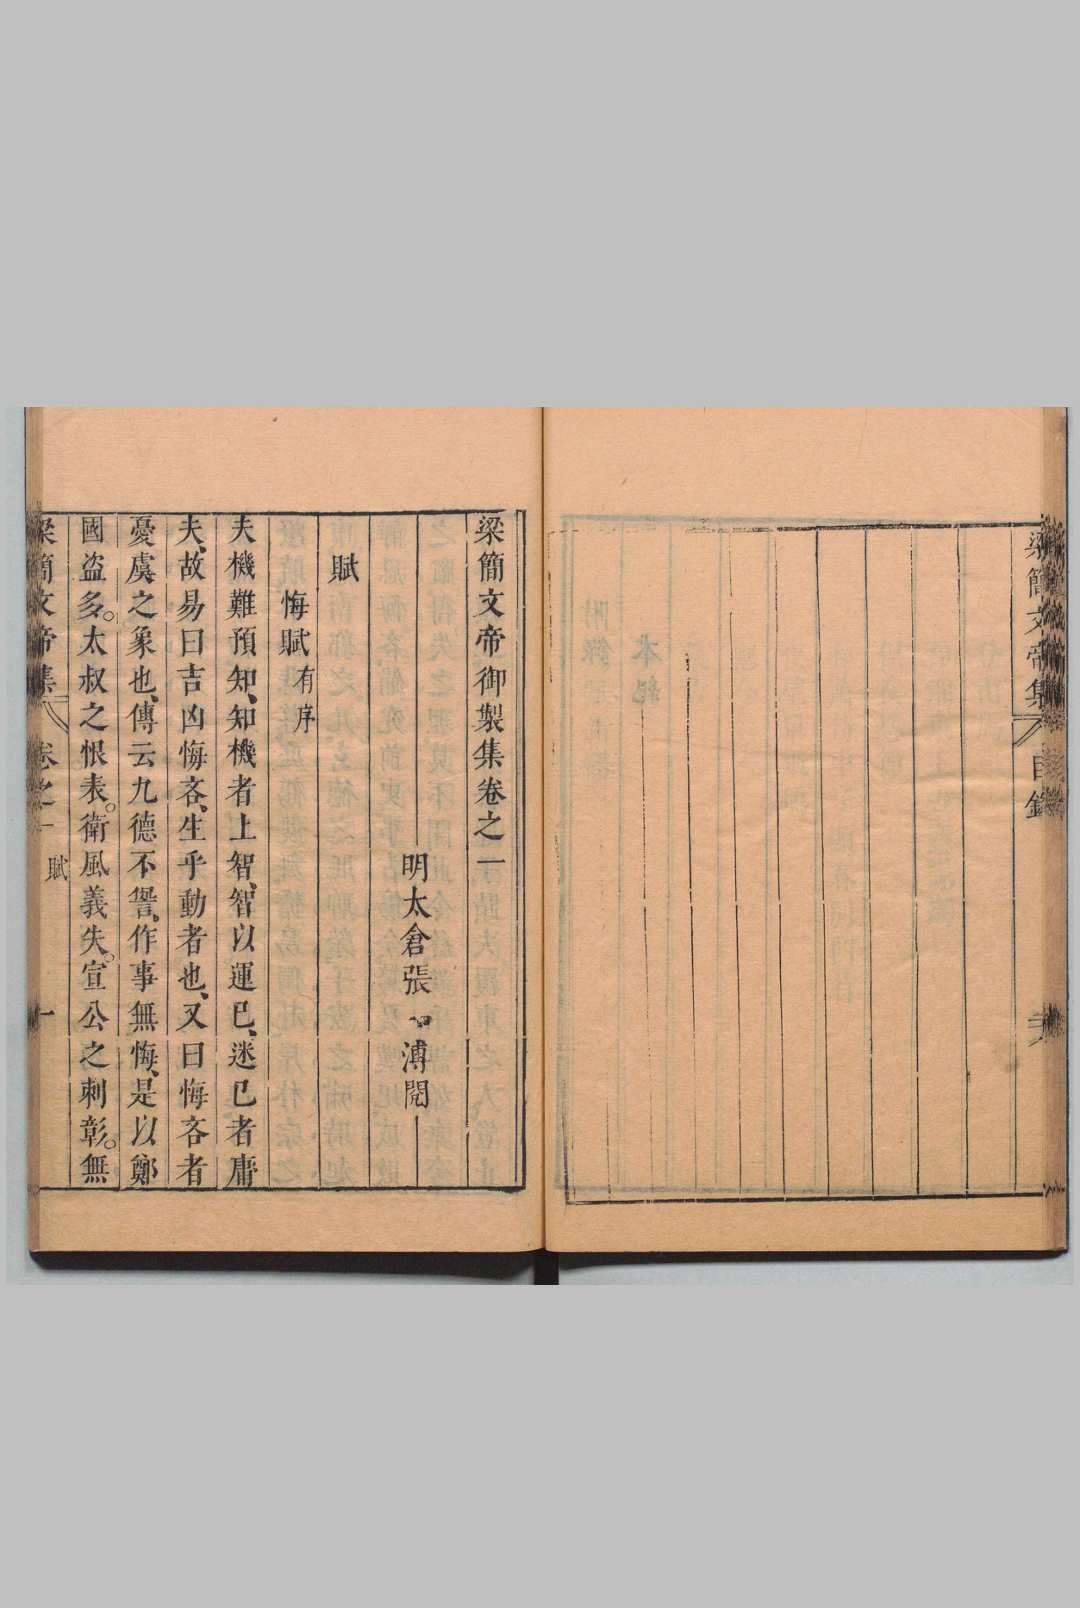 梁簡文帝集 目錄
梁簡文帝御製集卷之一
明太倉張溥閱
賦
悔賦有序
夫機難預知、知機者上智、智以運己、迷己者庸
夫、故易曰吉凶悔吝、生乎動者也、又曰悔吝者
憂虞之象也、傳云九德不諐、作事無悔、是以鄭
國盗多。太叔之恨表。衛風義失。宣公之刺彰。無
梁簡文帝集 卷之一 賦 一